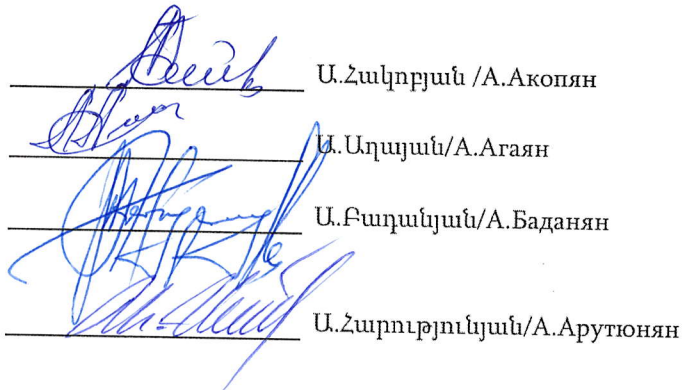 Ա.Հակոբյան /А.Акопян
Ա.Աղայան/А.Агаян
Ա.Բադանյան/А.Баданян
Ա.Հարությունյան/А.Арутюнян